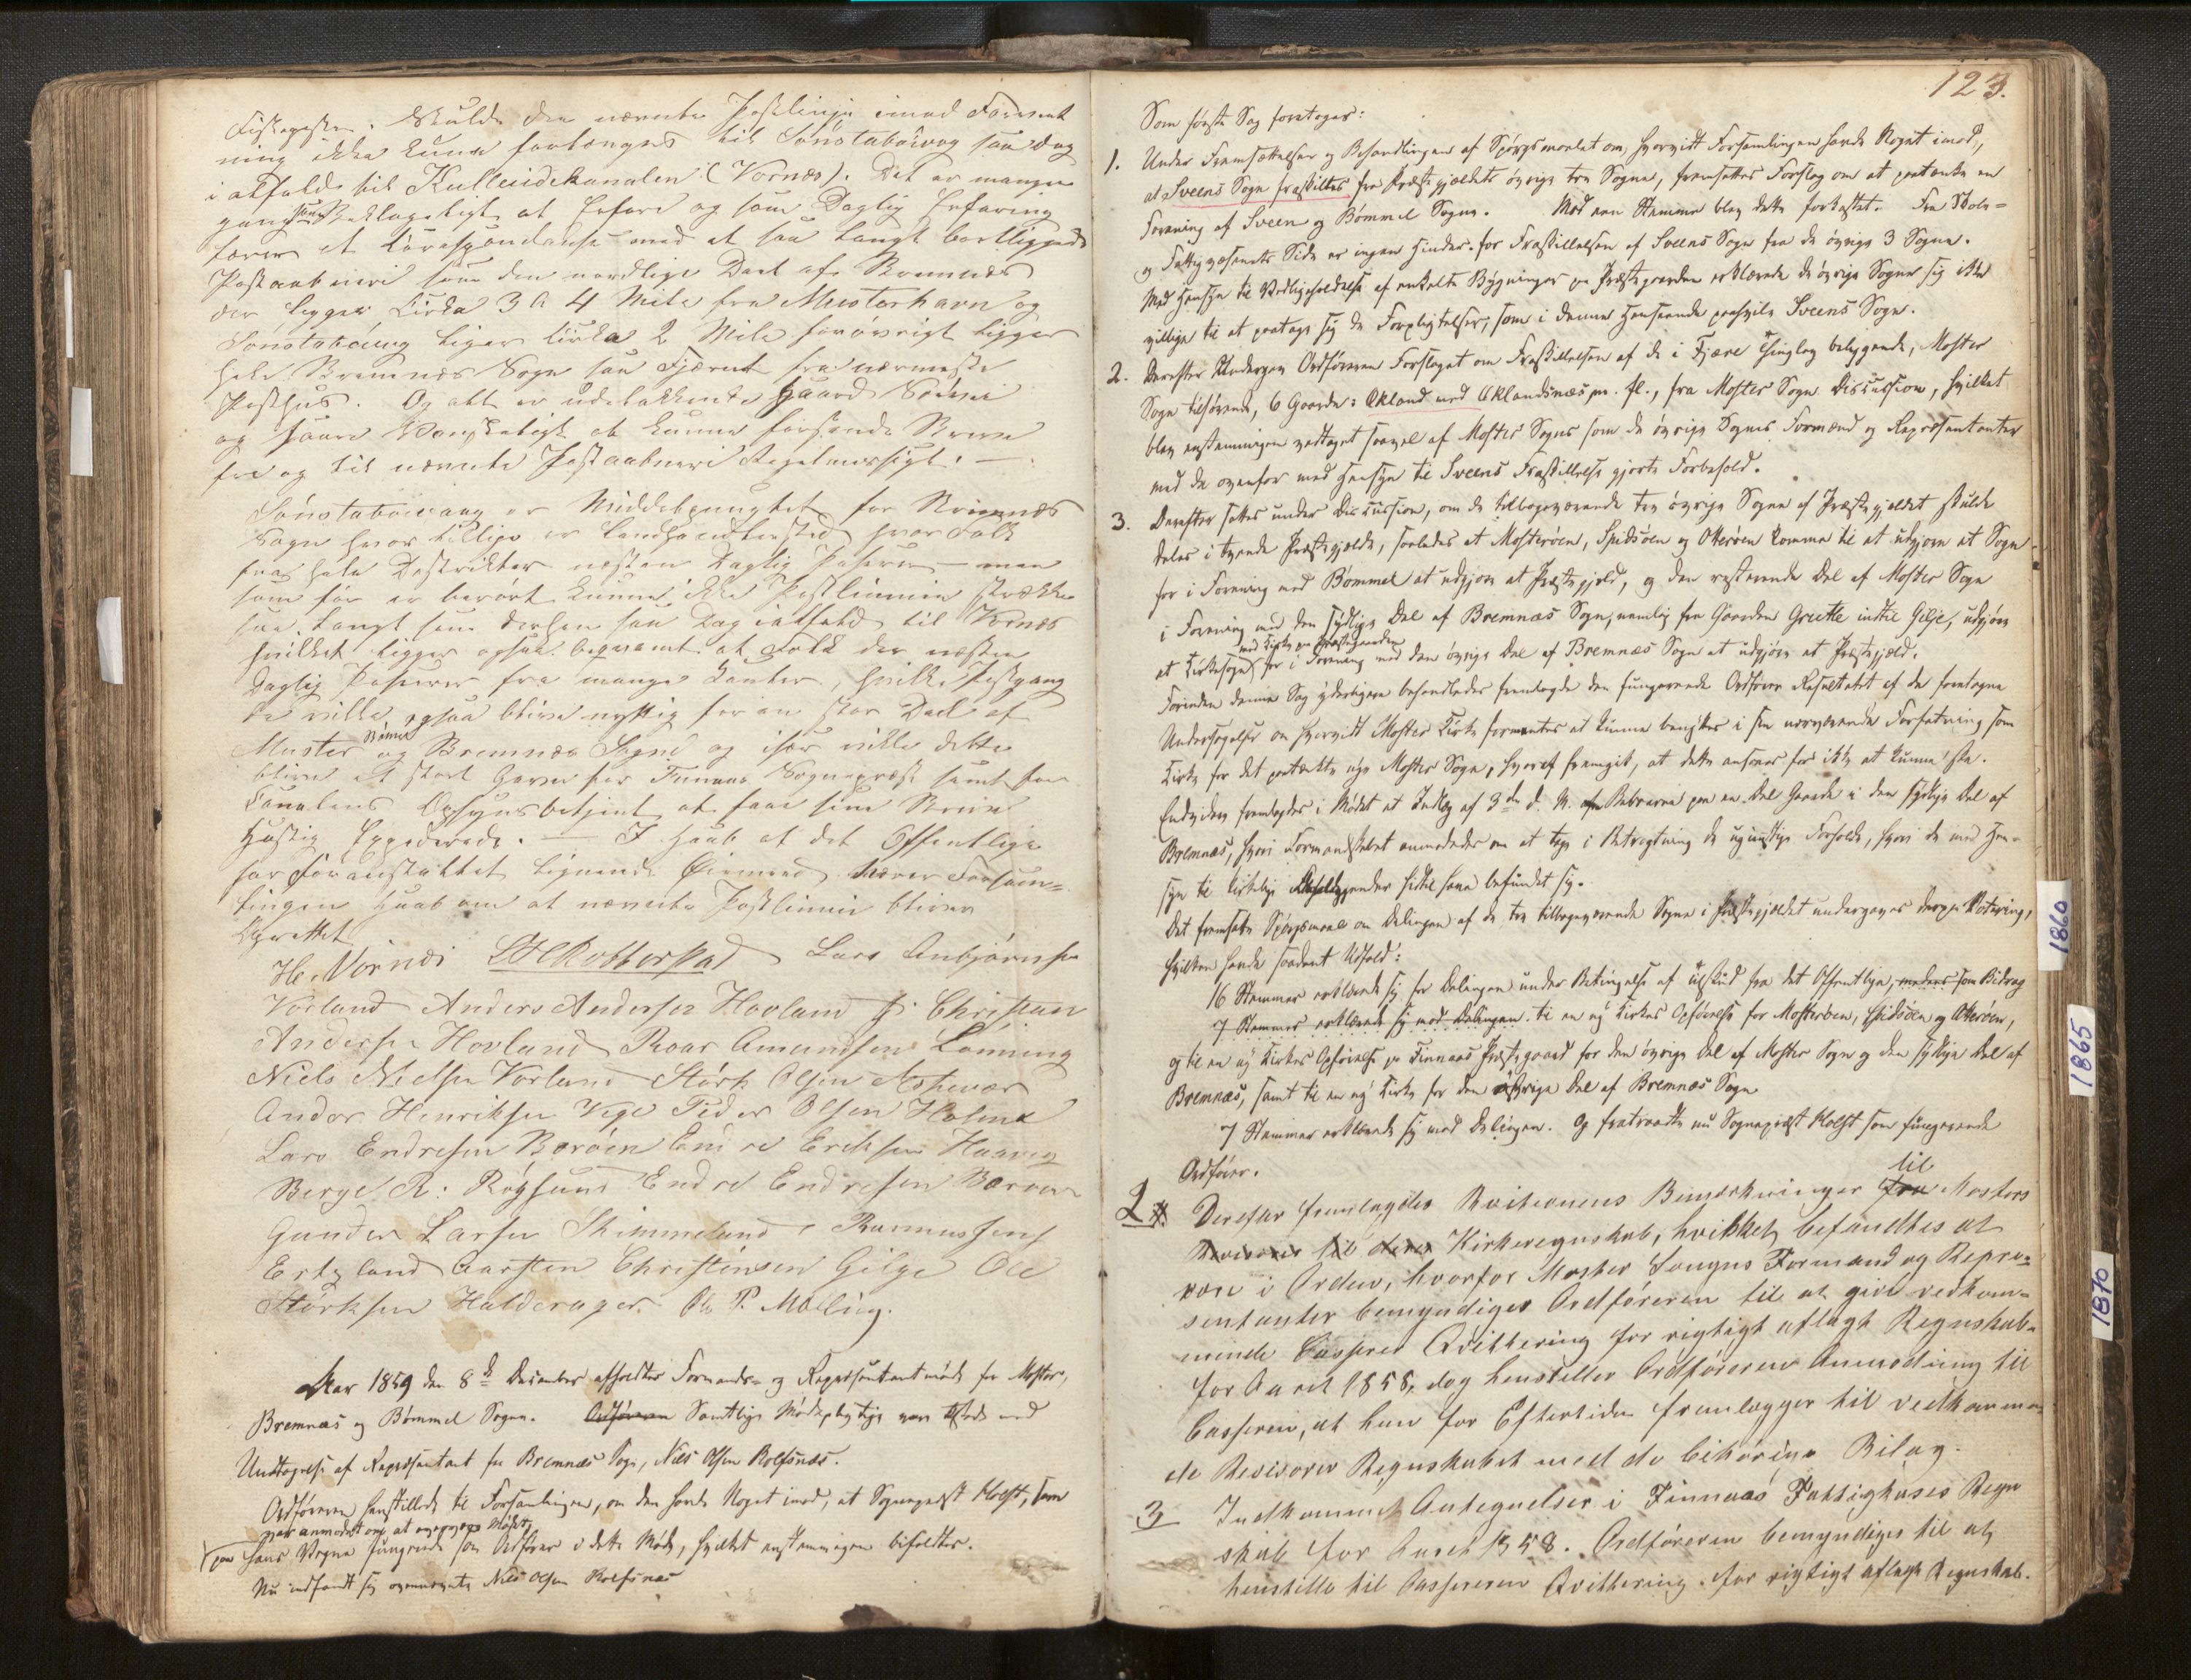 Fiskepster. Skulde den nævnte Postlinje imod Forvent
ning ikke kunne forlænges til Sønstabøvog saa dog
i alfald til Kulleidekanalen (Vornæs). Det er mange
gange saa Beklageligt at Erfare og som Daglig Erfaring
lærer et Correspondance med et saa langt bortliggende
Postaabneri som den nordlige Deel af Bremnæs
der ligger Cirka 3 a 4 Mile fra Mosterhavn og
Sønstabøvog ligger Cirka 2 Mile forøvrigt ligger
hele Bremnæs Sogn saa Fjærnt fra nærmeste
Posthus. Og alt er udelukkende
og saare Vanskeligt at kunne forsende Breve
fra og til nævnte Postaabneri Regelmæssigt. —
Sønstabøvaag er Middelpunktet for Bremnæs
Sogn hvor tillige er Landhandlersted hvor Folk
fra hele Destrikter næsten Daglig Paserer — men
som før er berørt kunne ikke Postlinnien strække
saa langt som derhen saa Dog ialfald til Vornæs
hvilket ligger ogsaa beqvemt at Folk der næsten
Daglig Paserer fra mange Kanter, hvilke Postgang
da ville ogsaa blive nyttig for en stor Deel af
Bømel
Muster og Bremnæs Sogne og især vilde dette
blive et stort Gavn for Finnaas Sognepræst samt for
Canalens Opsynsbetjent at faae sine Breve
Hastig Expederede. — I Haab at det Offentlige
har foranstaltet lignende Øiemed nærer Forsam=
lingen Haab om at nævnte Postlinnie bliver
Oprettet
H. Vornæs Lars Anbjørnsen
Vorland Anders Andersen Hovland Christian
Andersen Hovland Roar Amundsen Lønning
Niels Nielsen Vorland Størk Olsen Aspevær
Andor Henriksen Vege Peder Olsen Holme
Lars Endresen Børøen Endre Eriksen Haavig
Berge R: Røgsund Endre Endresen Børøen
Gunder Larsen Skimmeland Rasmussen
Eskeland Carsten Christensen Gilge Ole
Størksen Halderager. Ole P. Mælling.
Aar 1859 den 8de December afholdtes Formands- og Repræsentantmøde for Moster,
Bremnæs og Bømmel Sogne. Ordføreren Samtlige Mødepligtige vare tilstede med
Undtagelse af Repræsentant for Bremnæs Sogn, Niels Olsen Rolfsnæs.
Ordføreren henstillede til Forsamlingen, om den havde Noget imod, at Sognepræst Holst, som
var anmodet om at overvære Mødet,
paa hans Vegne fungerede som Ordfører i dette Møde, hvilket enstemmigen bifaldtes.
Nu indfandt sig ovennævnte Niels Olsen Rolfsnæs
123.
Som første Sag foretoges:
1. Under Fremsættelsen og Behandlingen af Spørgsmaalet om, hvorvidt Forsamlingen havde Noget imod,
at Sveens Sogn fraskiltes fra Præstegjældets øvrige tre Sogne, fremsattes Forslag om at paatænke en
Forening af Sveen og Bømmel Sogne. Mod een Stemme blev dette forkastet. Fra Skole-
og Fattigvæsenets Side er ingen Hinder for Fraskillelsen af Sveens Sogn fra de øvrige 3 Sogne.
Med Hensyn til Vedligeholdelse af enkelte Bygninger paa Præstegaarden erklærede de øvrige Sogne sig ikke
villige til at paatage sig de Forpligtelser, som i denne Henseende paahvile Sveens Sogn.
2. Derefter Undergav Ordføreren Forslaget om Fraskillelsen af de i Fjære Thinglag beliggende, Moster
Sogn tilhørende, 6 Gaarde: Økland med Øklandsnæs m. fl., fra Moster Sogn Discussion, hvilket
blev enstemmigen vedtaget saavel af Moster Sogns som de øvrige Sognes Formænd og Repræsentanter
med de ovenfor med Hensyn til Sveens Fraskillelse gjorte Forbehold.
3. Derefter sattes under Discussion, om de tilbageværende tre øvrige Sogne af Præstegjældet skulde
deles i tvende Præstegjælde, saaledes at Mosterøen, Spidsøen og Otterøen komme til at udgjøre et Sogn
for i Forening med Bømmel at udgjøre et Præstegjeld, og den resterende Del af Moster Sogn
i Forening med den sydlige Del af Bremnæs Sogn, nemlig fra Gaarden Grutle indtil Gilje, udgjøre
med Kirke paa Præstegaarden
et Kirkesogn for i Forening med den øvrige Del af Bremnæs Sogn at udgjøre et Præstegjeld.
Forinden denne Sag yderligere behandledes fremlagde den fungerende Ordfører Resultatet af de foretagne
Undersøgelser om hvorvidt Moster Kirke formentes at kunne benyttes i sin nærværende Forfatning som
Kirke for det paatænkte nye Moster Sogn, hvoraf fremgik, at dette ansaaes for ikke at kunne ske.
Endvidere fremlagdes i Mødet et Indlæg af 3die d. M. fra Beboerne paa en Del Gaarde i den sydlige Del af
Bremnæs, hvori Formandskabet anmodedes om at tage i Betragtning de ugunstige Forholde, hvori de med Hen-
syn til kirkelige hidtil have befundet sig.
Det fremsatte Spørgsmaal om Delingen af de tre tilbageværende Sogne i Præstegjældet undergaves derpaa Votering,
hvilken havde saadant Udfald:
16 Stemmer erklærede sig for Delingen under Betingelse af Tilskud fra det Offentlige, medens som Bidrag
7 Stemmer erklærede sig mod Delingen. til en ny Kirkes Opførelse for Mosterøen, Spidsøen og Otterøen,
og til en ny Kirkes Opførelse paa Finnaas Præstegaard for den øvrige Del af Moster Sogn og den sydlige Del af
Bremnæs, samt til en ny Kirke for den øvrige Del af Bremnæs Sogn
7 Stemmer erklærede sig mod Delingen. Og fratraadte nu Sognepræst Holst som fungerende
Ordfører.
til
2 Derefter fremlagdes Revisionens Bemærkninger fra Mosters
Revisorer til deres Kirkeregnskab, hvilket befandtes at
være i Orden, hvorfor Moster Songns Formænd og Repræ=
sentanter bemyndiger Ordføreren til at give vedkom=
mende Casserer Qvittering for rigtigt aflagt Regnskab
for Aaret 1858, dog henstiller Ordføreren Anmodning til
Casseren, at han for Eftertiden fremlægger til vedkommen
de Revisorer Regnskabet med de behørige Bilag.
3 Indkommet Antegnelser i Finnaas Fattigkases Regn
skab for Aaret 1858. Ordføreren bemyndiges til at
henstille til Cassereren Qvittering for rigtigt aflagt Regnskab.
1860
1865
1870